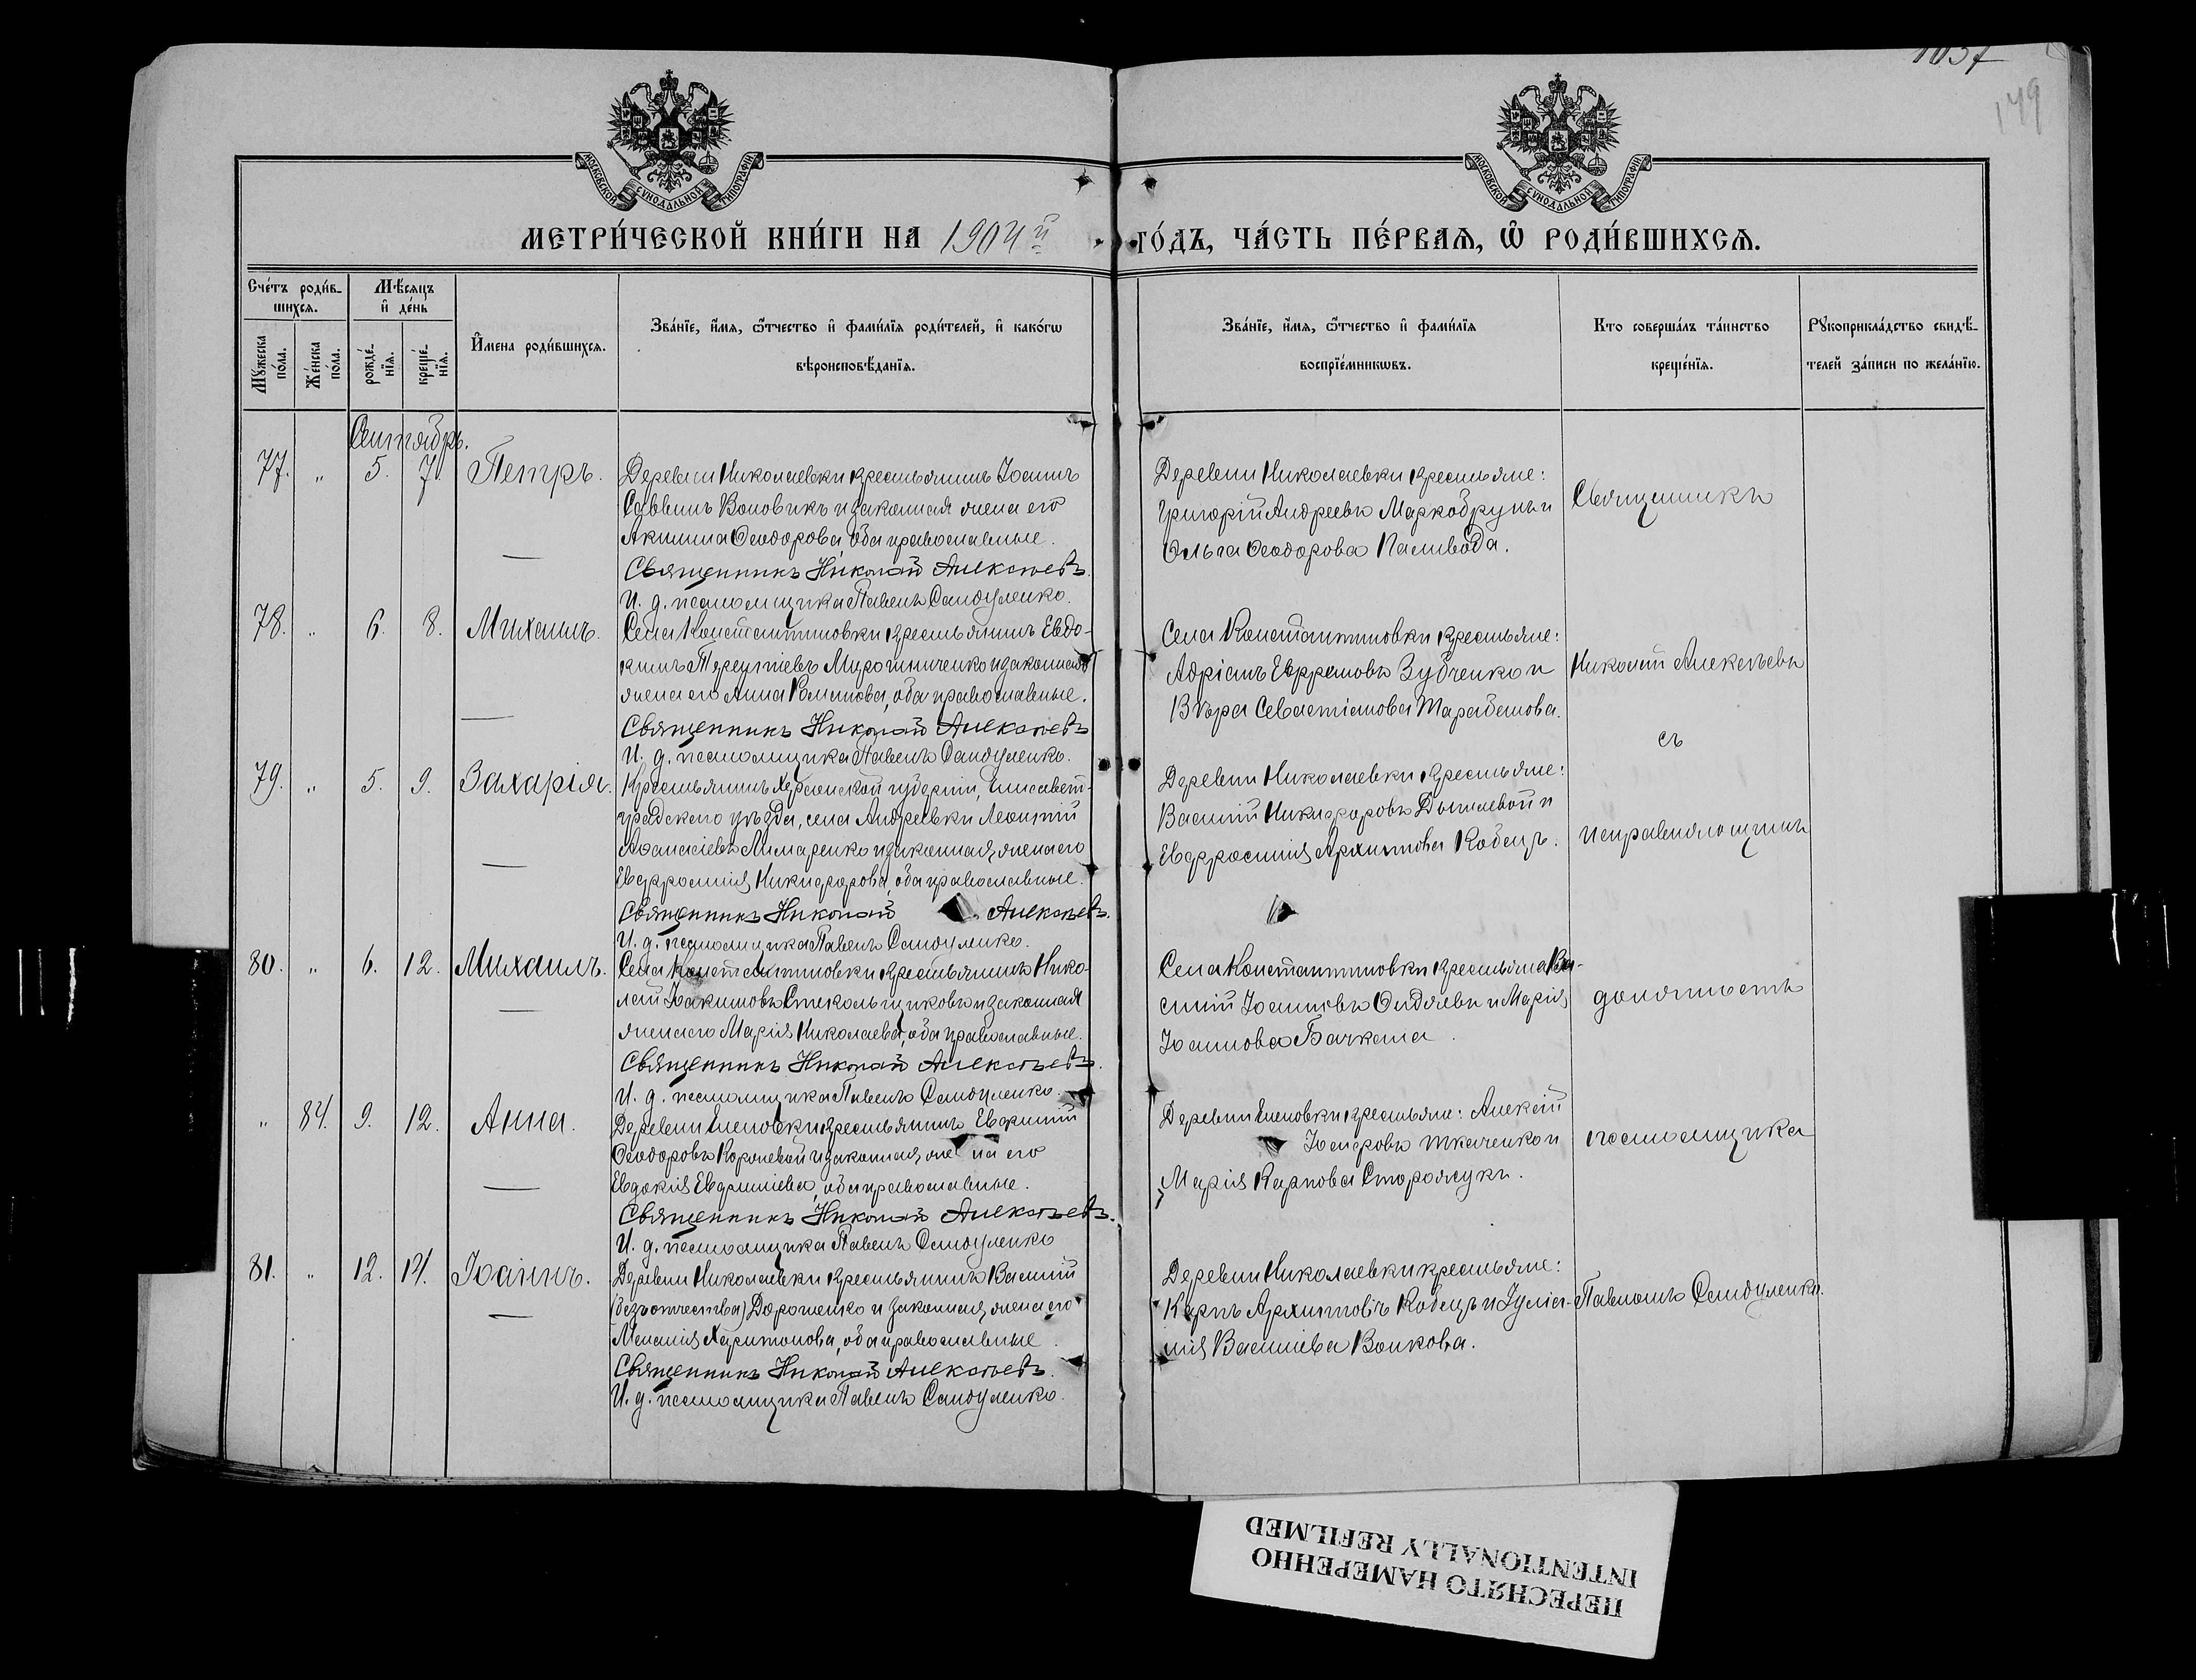 1037
149
МОСКОВСКОЙ СѴНОДАЛЬНОЙ ТИПОГРАФІИ
МОСКОВСКОЙ СѴНОДАЛЬНОЙ ТИПОГРАФІИ
МЕТРИ́ЧЕСКОЙ КНИ́ГИ НА 1904й ГО́ДЪ, ЧА́СТЬ ПЕ́РВАѦ, Ѡ҆ РОДИ́ВШИХСѦ.
Сче́тъ роди́вшихсѧ.
Мꙋ́жеска по́ла.
Же́нска по́ла.
Мѣ́сѧцъ и҆ де́нь
рожде́нїѧ.
креще́нїѧ.
И҆мена роди́вшихсѧ.
Зва́нїе, и҆́мѧ, ѻ҆́тчество и҆ фами́лїѧ роди́телей, и҆ како́гѡ
вѣроисповѣ́данїѧ.
Зва́нїе, и҆́мѧ, ѻ҆́тчество и҆ фами́лїѧ
воспрїе́мникѡвъ.
Кто соверша́лъ та́инство
креще́нїѧ.
Рꙋкоприкла́дство свидѣ́-
телей за́писи по жела́нїю.
Сентябрь.
77. „ 5. 7. Петръ.
Деревни Николаевки крестьянинъ Іоаннъ
Саввинъ Воловикъ и законная жена его
Акилина Ѳеодорова, оба православные.
Священникъ Николай Алексѣевъ.
И. д. псаломщика Павелъ Сандуленко.
Деревни Николаевки крестьяне:
Григорій Андреевъ Маркобрунъ и
Ольга Ѳеодорова Паливода.
Священникъ
78. „ 6. 8. Михаилъ.
Села Константиновки крестьянинъ Евдо-
кимъ Терентіевъ Мирошниченко и законная
жена его Анна Романова, оба православные.
Священникъ Николай Алексѣевъ
И. д. псаломщика Павелъ Сандуленко.
Села Константиновки крестьяне:
Адріанъ Ефремовъ Зубченко и
Вѣра Севастіанова Тарабанова.
Николай Алексѣевъ
съ
79. „ 5. 9. Захарія.
Крестьянинъ Херсонской губерніи, Елисавет-
градского уѣзда, села Андреевки Леонтій
Аѳанасіевъ Лимаренко и законная жена его
Евфросинія Никифорова, оба православные.
Священникъ Николай Алексѣевъ.
И. д. псаломщика Павелъ Сандуленко.
Деревни Николаевки крестьяне:
Василій Никифоровъ Дышлевой и
Евфросинія Архипова Кобецъ.
исправляющимъ
80. „ 6. 12. Михаилъ.
Села Константиновки крестьянинъ Нико-
лай Іоакимовъ Стекольщиковъ и законная
жена его Марія Николаева, оба православные.
Священникъ Николай Алексѣевъ.
И. д. псаломщика Павелъ Сандуленко.
Села Константиновки крестьяне Ва-
силій Іоанновъ и Марія
Іоаннова Бачкала.
должность
„ 84. 9. 12. Анна.
Деревни Еленовки крестьянинъ Евфимій
Ѳеодоровъ Королевой и законная жена его
Евдокія Евфиміева, оба православные.
Священникъ Николай Алексѣевъ.
И. д. псаломщика Павелъ Сандуленко
Деревни Еленовки крестьяне: Алексій
Іосифовъ Ткаченко и
Марія Карпова Сторожукъ.
псаломщика
81. „ 12. 14. Іоаннъ.
Деревни Николаевки крестьянинъ Василій
(безъ отчества) Дорошенко и законная жена его
Меланія Харитонова, оба православные.
Священникъ Николай Алексѣевъ.
И. д. псаломщика Павелъ Сандуленко.
Деревни Николаевки крестьяне:
Карпъ Архиповъ Кобецъ и Іулiа-
нія Василіева Волкова.
Павломъ Сандуленко.
ПЕРЕСНЯТО НАМЕРЕННО
INTENTIONALLY REFILMED